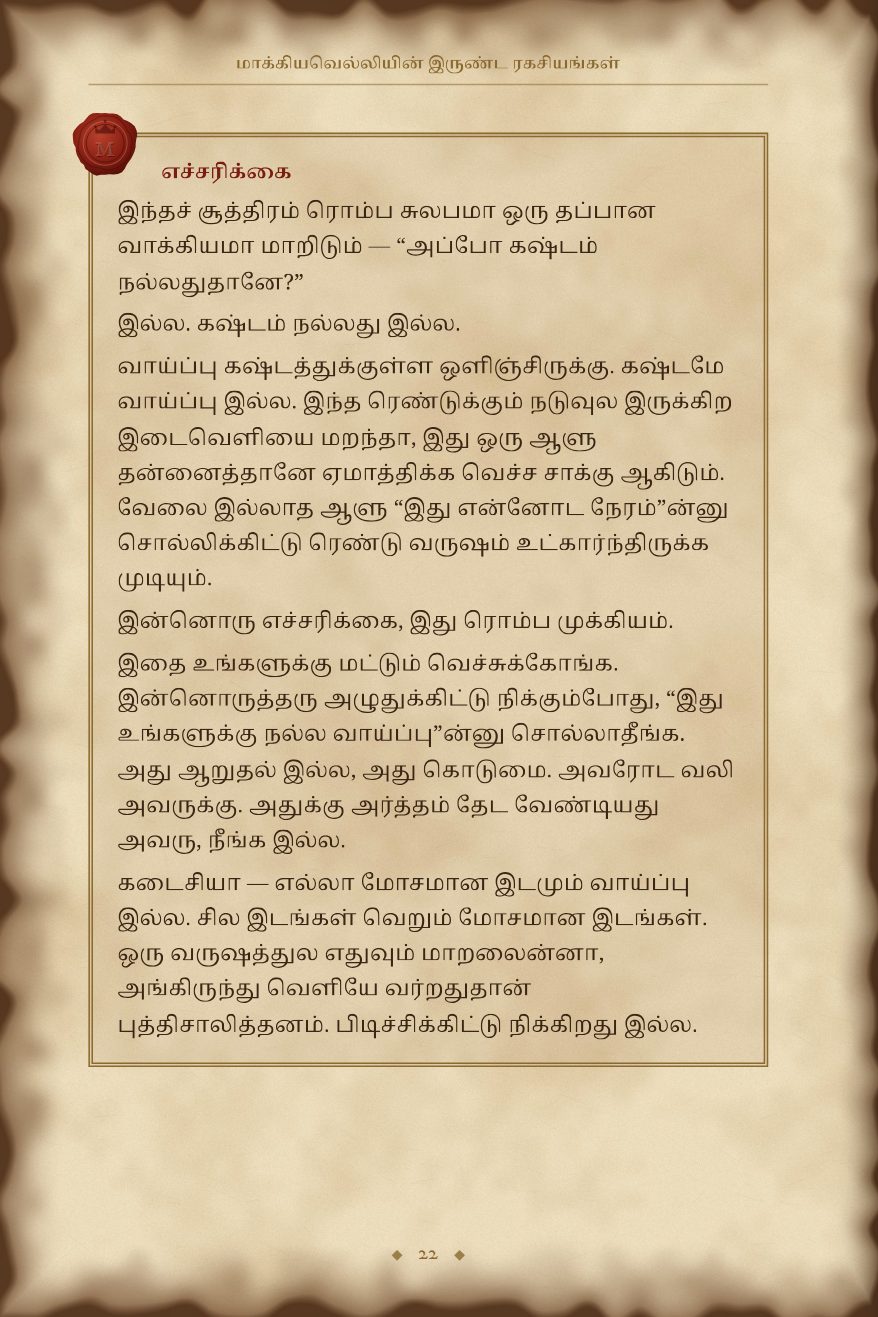 மாக்கியவெல்லியின் இருண்ட ரகசியங்கள்
M
எச்சரிக்கை
இந்தச் சூத்திரம் ரொம்ப சுலபமா ஒரு தப்பான
வாக்கியமா மாறிடும் — “அப்போ கஷ்டம்
நல்லதுதானே?”
இல்ல. கஷ்டம் நல்லது இல்ல.
வாய்ப்பு கஷ்டத்துக்குள்ள ஒளிஞ்சிருக்கு. கஷ்டமே
வாய்ப்பு இல்ல. இந்த ரெண்டுக்கும் நடுவுல இருக்கிற
இடைவெளியை மறந்தா, இது ஒரு ஆளு
தன்னைத்தானே ஏமாத்திக்க வெச்ச சாக்கு ஆகிடும்.
வேலை இல்லாத ஆளு “இது என்னோட நேரம்”ன்னு
சொல்லிக்கிட்டு ரெண்டு வருஷம் உட்கார்ந்திருக்க
முடியும்.
இன்னொரு எச்சரிக்கை, இது ரொம்ப முக்கியம்.
இதை உங்களுக்கு மட்டும் வெச்சுக்கோங்க.
இன்னொருத்தரு அழுதுக்கிட்டு நிக்கும்போது, “இது
உங்களுக்கு நல்ல வாய்ப்பு”ன்னு சொல்லாதீங்க.
அது ஆறுதல் இல்ல, அது கொடுமை. அவரோட வலி
அவருக்கு. அதுக்கு அர்த்தம் தேட வேண்டியது
அவரு, நீங்க இல்ல.
கடைசியா — எல்லா மோசமான இடமும் வாய்ப்பு
இல்ல. சில இடங்கள் வெறும் மோசமான இடங்கள்.
ஒரு வருஷத்துல எதுவும் மாறலைன்னா,
அங்கிருந்து வெளியே வர்றதுதான்
புத்திசாலித்தனம். பிடிச்சிக்கிட்டு நிக்கிறது இல்ல.
22